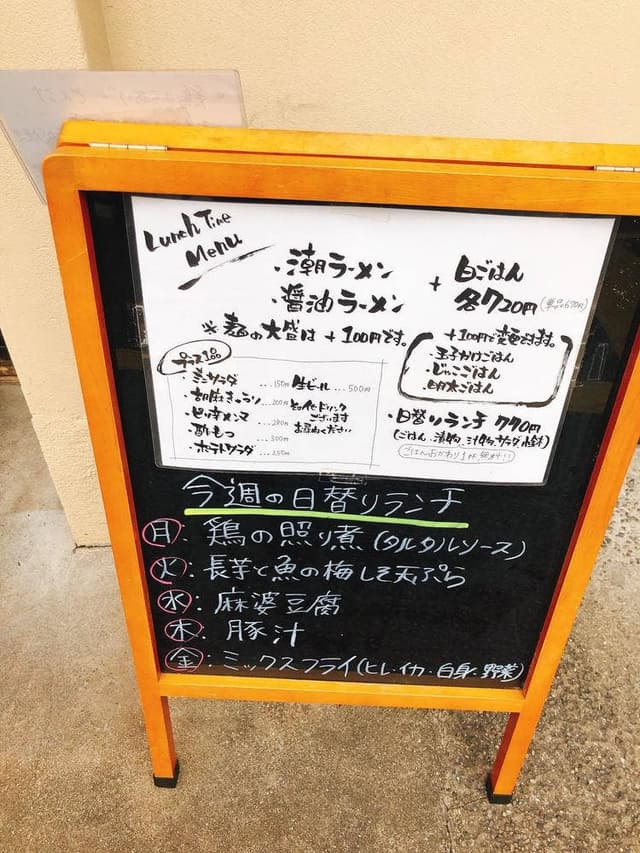 Lunch Time
Menu
・潮ラーメン
・醤油ラーメン
+ 白ごはん
各720円(単品670円)
※麺の大盛は+100円です。
+100円で変更できます。
・玉子かけごはん
・じゃこごはん
・明太ごはん
・ミニサラダ ...150円
...200円
...280円
・酢もつ ...300円
・ポテトサラダ ...250円
生ビール...500円
その他ドリンク
ございます
お尋ねください
・日替りランチ 770円
(ごはん・漬物・汁物・サラダ付き)
今週の日替りランチ
月:鶏の照り煮(タルタルソース)
火:長芋と魚の梅しそ天ぷら
水:麻婆豆腐
木:豚汁
金:ミックスフライ(ヒレ・イカ・白身・野菜)